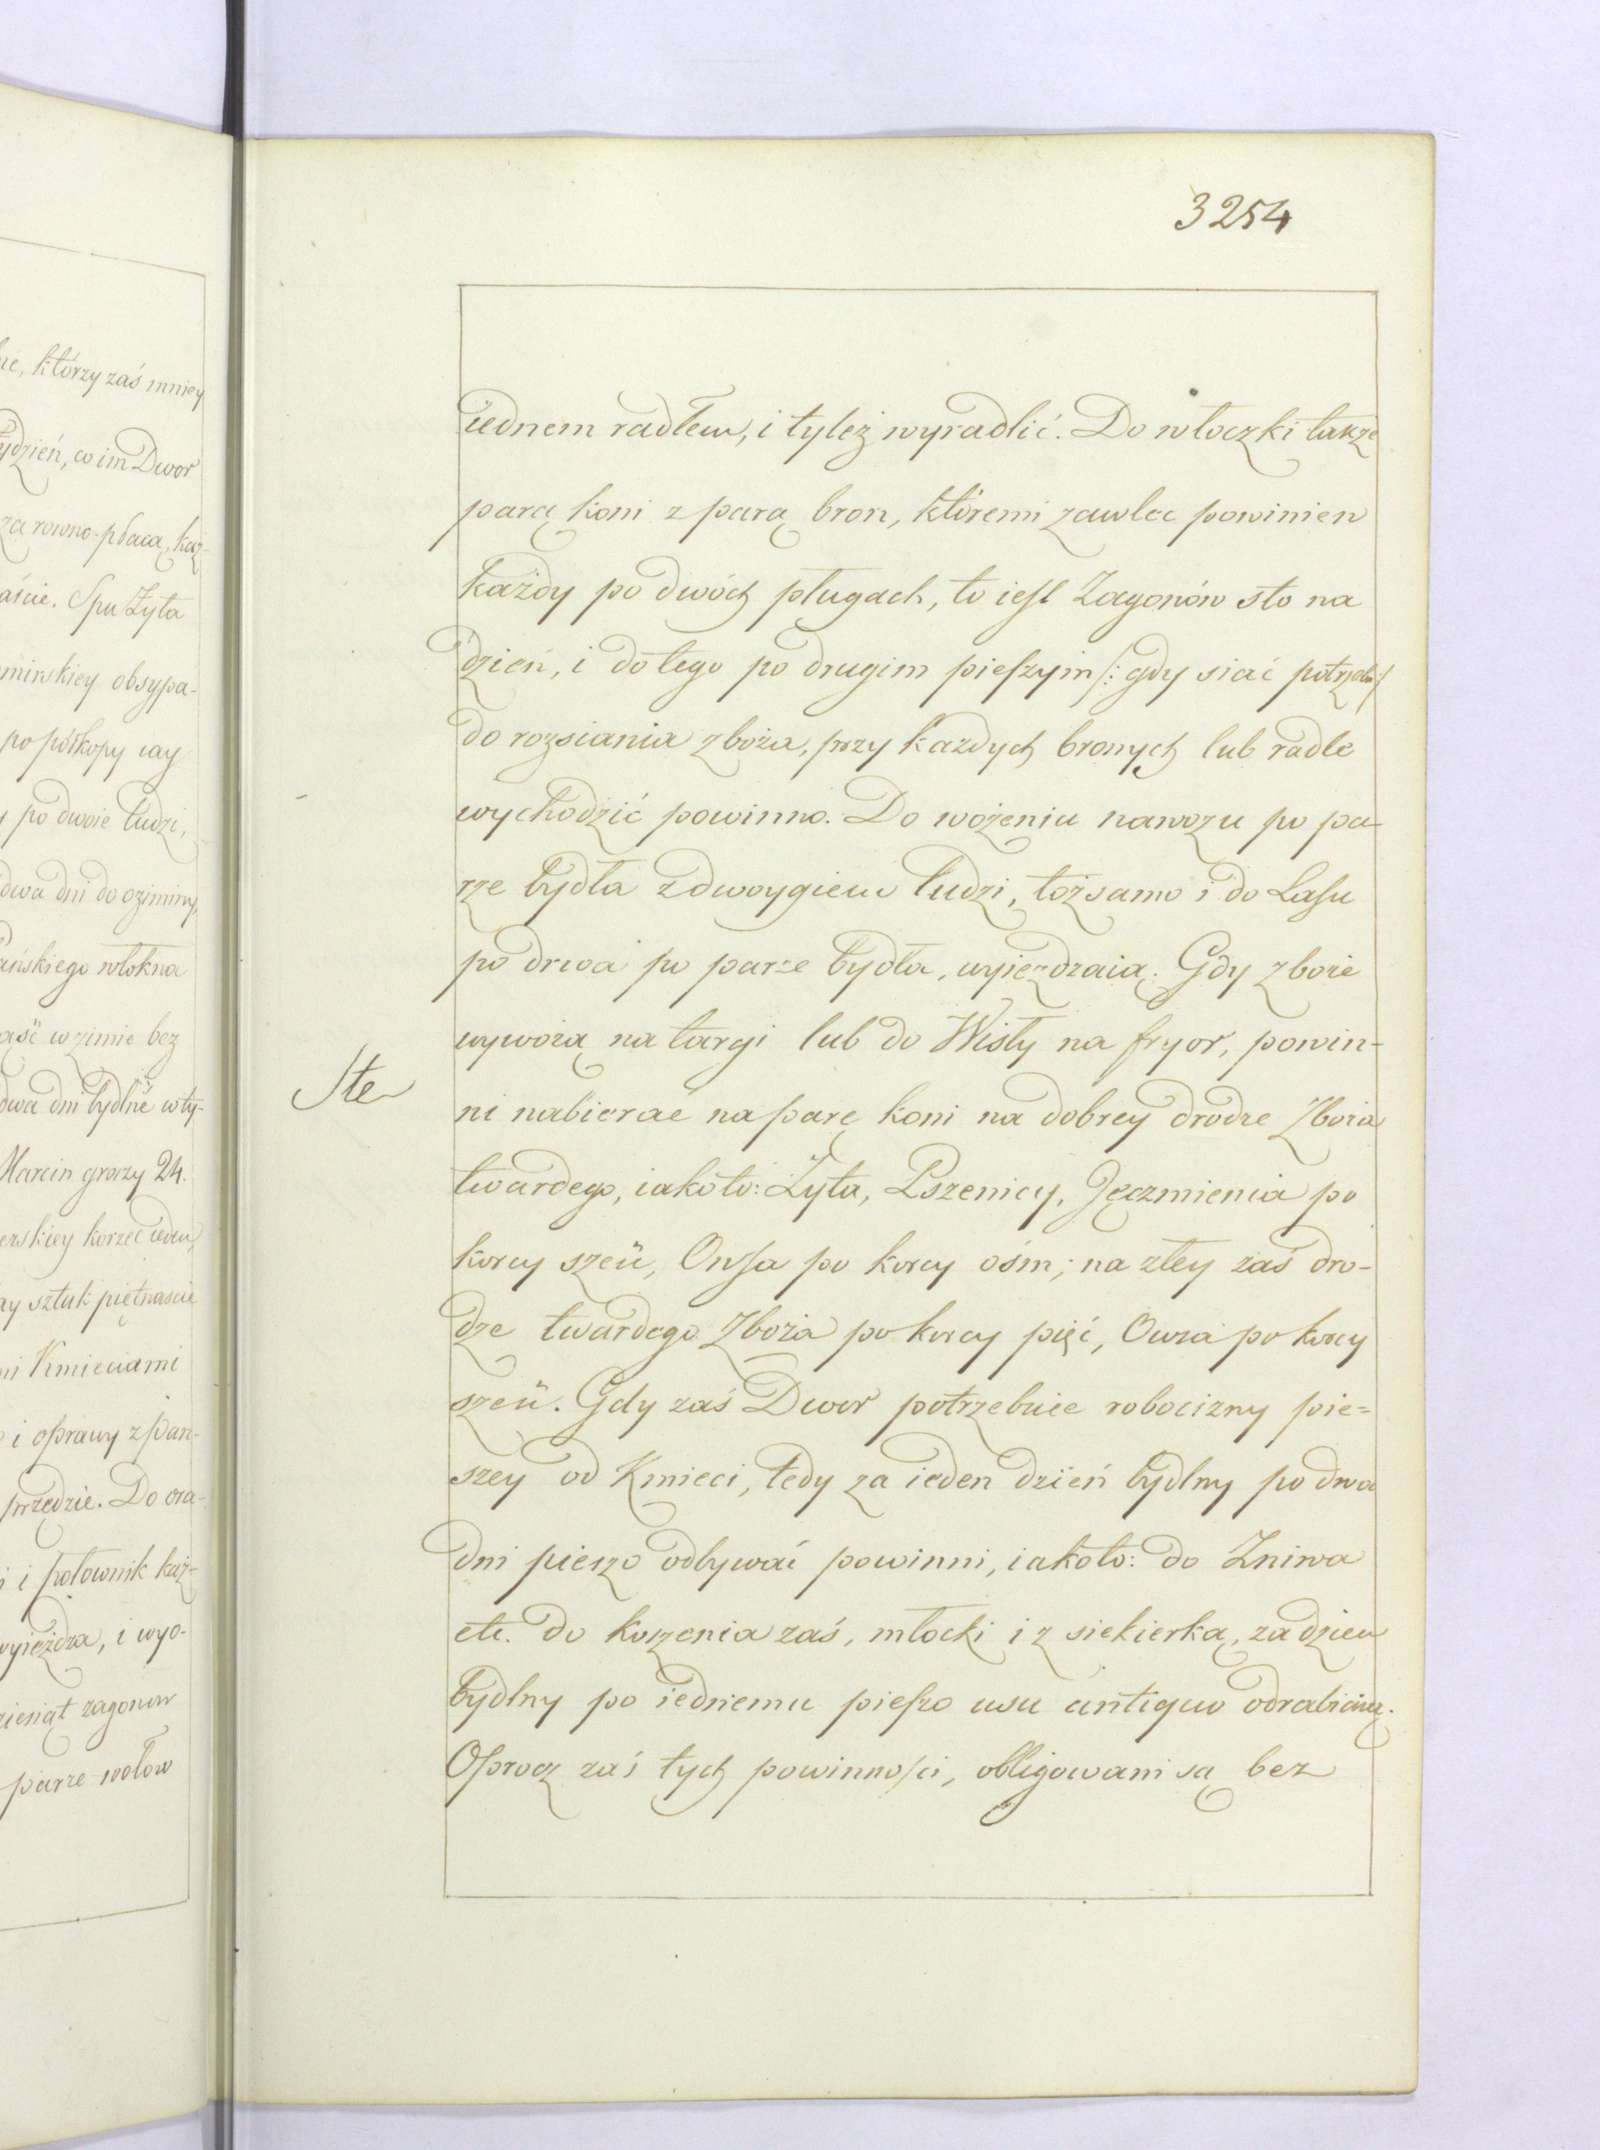 ne, którzy zaś mniey
ydzień, co im Dwor
za rowno płacą, każ-
aście. Spu Żyta
mirskiey obsypa-
po połkopy iay
po dwoie ludzi,
dwa dni do oziminy,
ańskiego włokna
aść w zimie bez
dwa dni bydlne w ty-
Marcin groszy 24.
erskiey korzec ieden,
ay sztuk piętnaście
mi Kmieciami
i oprawy z Pań-
przędzie. Do ora-
i połownik każ-
wyieżdza, i wyo-
ziesiąt zagonow
parze wołow
3254
iednem radłem, i tyleż wyradlić. Do włoczki także
parą koni z parą bron, któremi zawlec powinien
każdy po dwóch pługach, to iest Zagonów sto na
dzień, i do tego po drugim pieszym /: gdy siać potrzeba :/
do rozsiania zboża, przy każdych bronych lub radle
wychodzić powinno. Do wożenia nawozu po pa-
rze bydła z dwoygiem ludzi, toż samo i do Lasu
po drwa po parze bydła, wyieżdzaią. Gdy zboże
wywożą na targi lub do Wisły na fryor, powin-
ni nabierać na parę koni na dobrey drodze Zboża
Ste
twardego, iakoto: Żyta, Pszenicy, Jęczmienia po
korcy sześć, Owsa po korcy ośm; na złey zaś dro-
dze twardego Zboża po korcy pięć, Owsa po korcy
sześć. Gdy zaś Dwor potrzebuie robocizny pie=
szey od Kmieci, tedy za ieden dzień bydlny po dwa
dni pieszo odbywać powinni, iakoto: do Żniwa
etc. do koszenia zaś, młocki i z siekierką, za dzień
bydlny po iednemu pieszo usu antiquo odrabiaią.
Oprocz zaś tych powinności, obligowani są bez